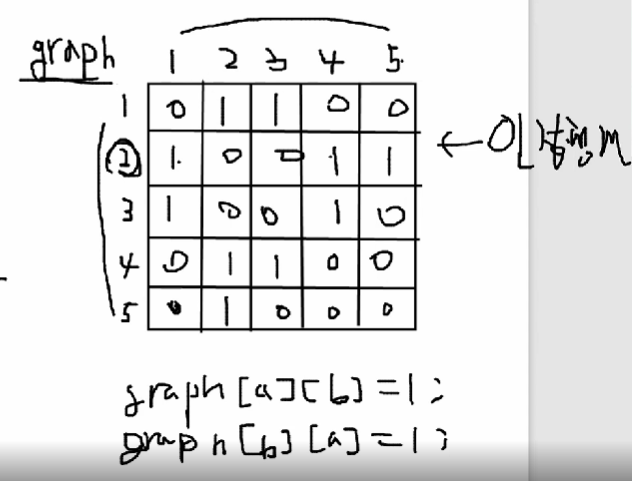 graph
1 2 3 4 5
1 0 1 1 0 0
2 1 0 0 1 1
3 1 0 0 1 0
4 0 1 1 0 0
5 0 1 0 0 0
graph[a][b]=1;
graph[b][a]=1;